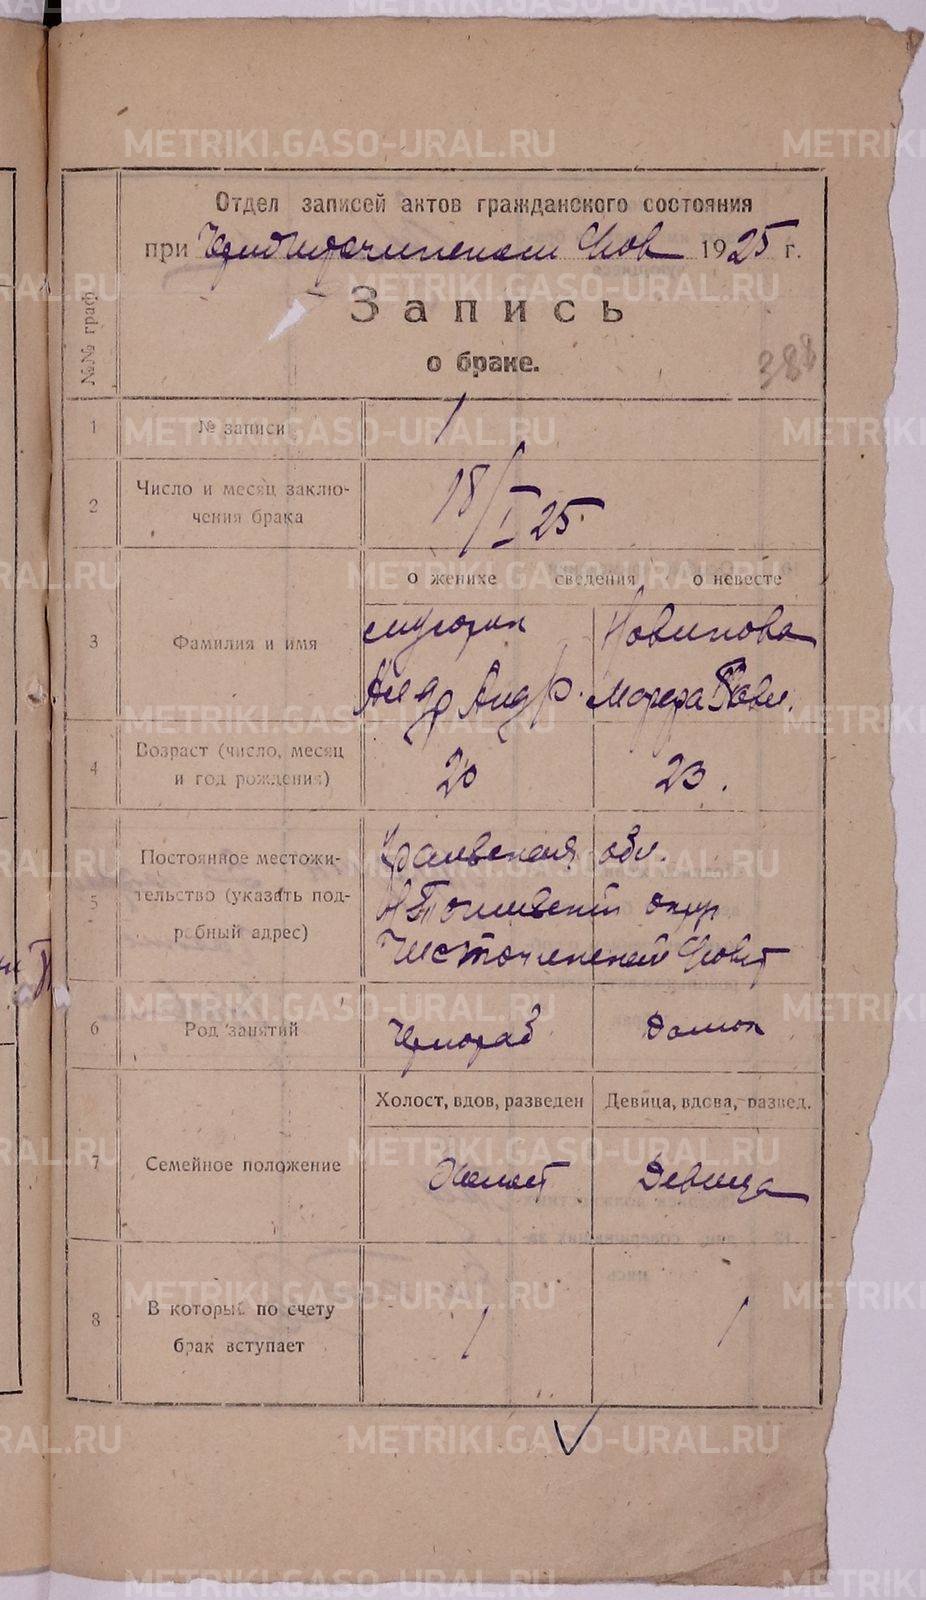 Отдел записей актов гражданского состояния
при 1925 г.
Запись
о браке.
388
№№ граф
1 № записи 1
2 Число и месяц заключения брака 18/I 25.
о женихе сведения о невесте
3 Фамилия и имя Новикова
Андр.
4 Возраст (число, месяц
и год рождения) 20 23.
5 Постоянное местожи-
тельство (указать под-
робный адрес)
Уральская обл.
округ
6 Род занятий Чернораб Домох
Холост, вдов, разведен Девица, вдова, развед.
7 Семейное положение Холост Девица
8 В который по счету
брак вступает 1 1
METRIKI.GASO-URAL.RU